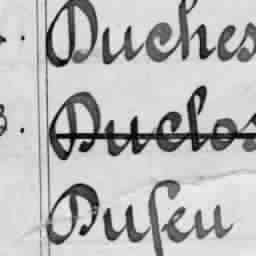 Duches
Duclos
Duseu